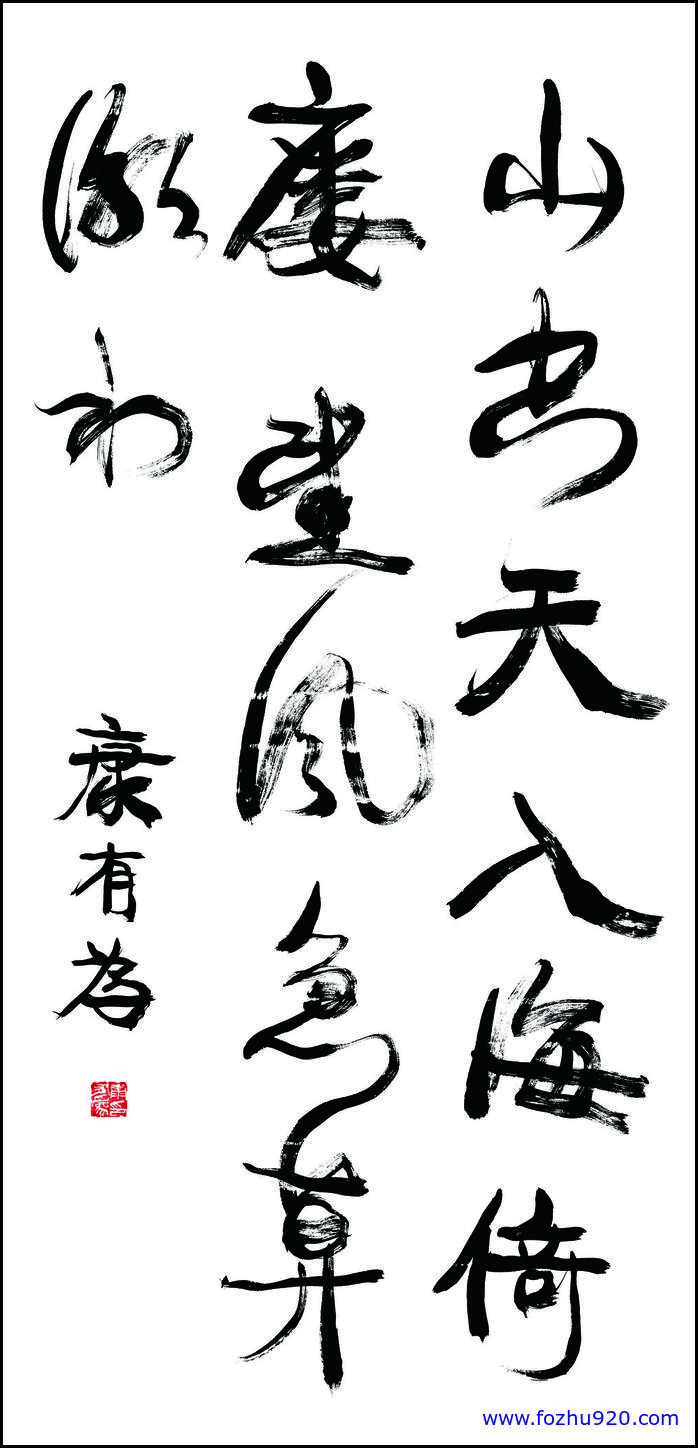 山空天入海倚
廔望風急暮
潮初
康有為
www.fozhu920.com